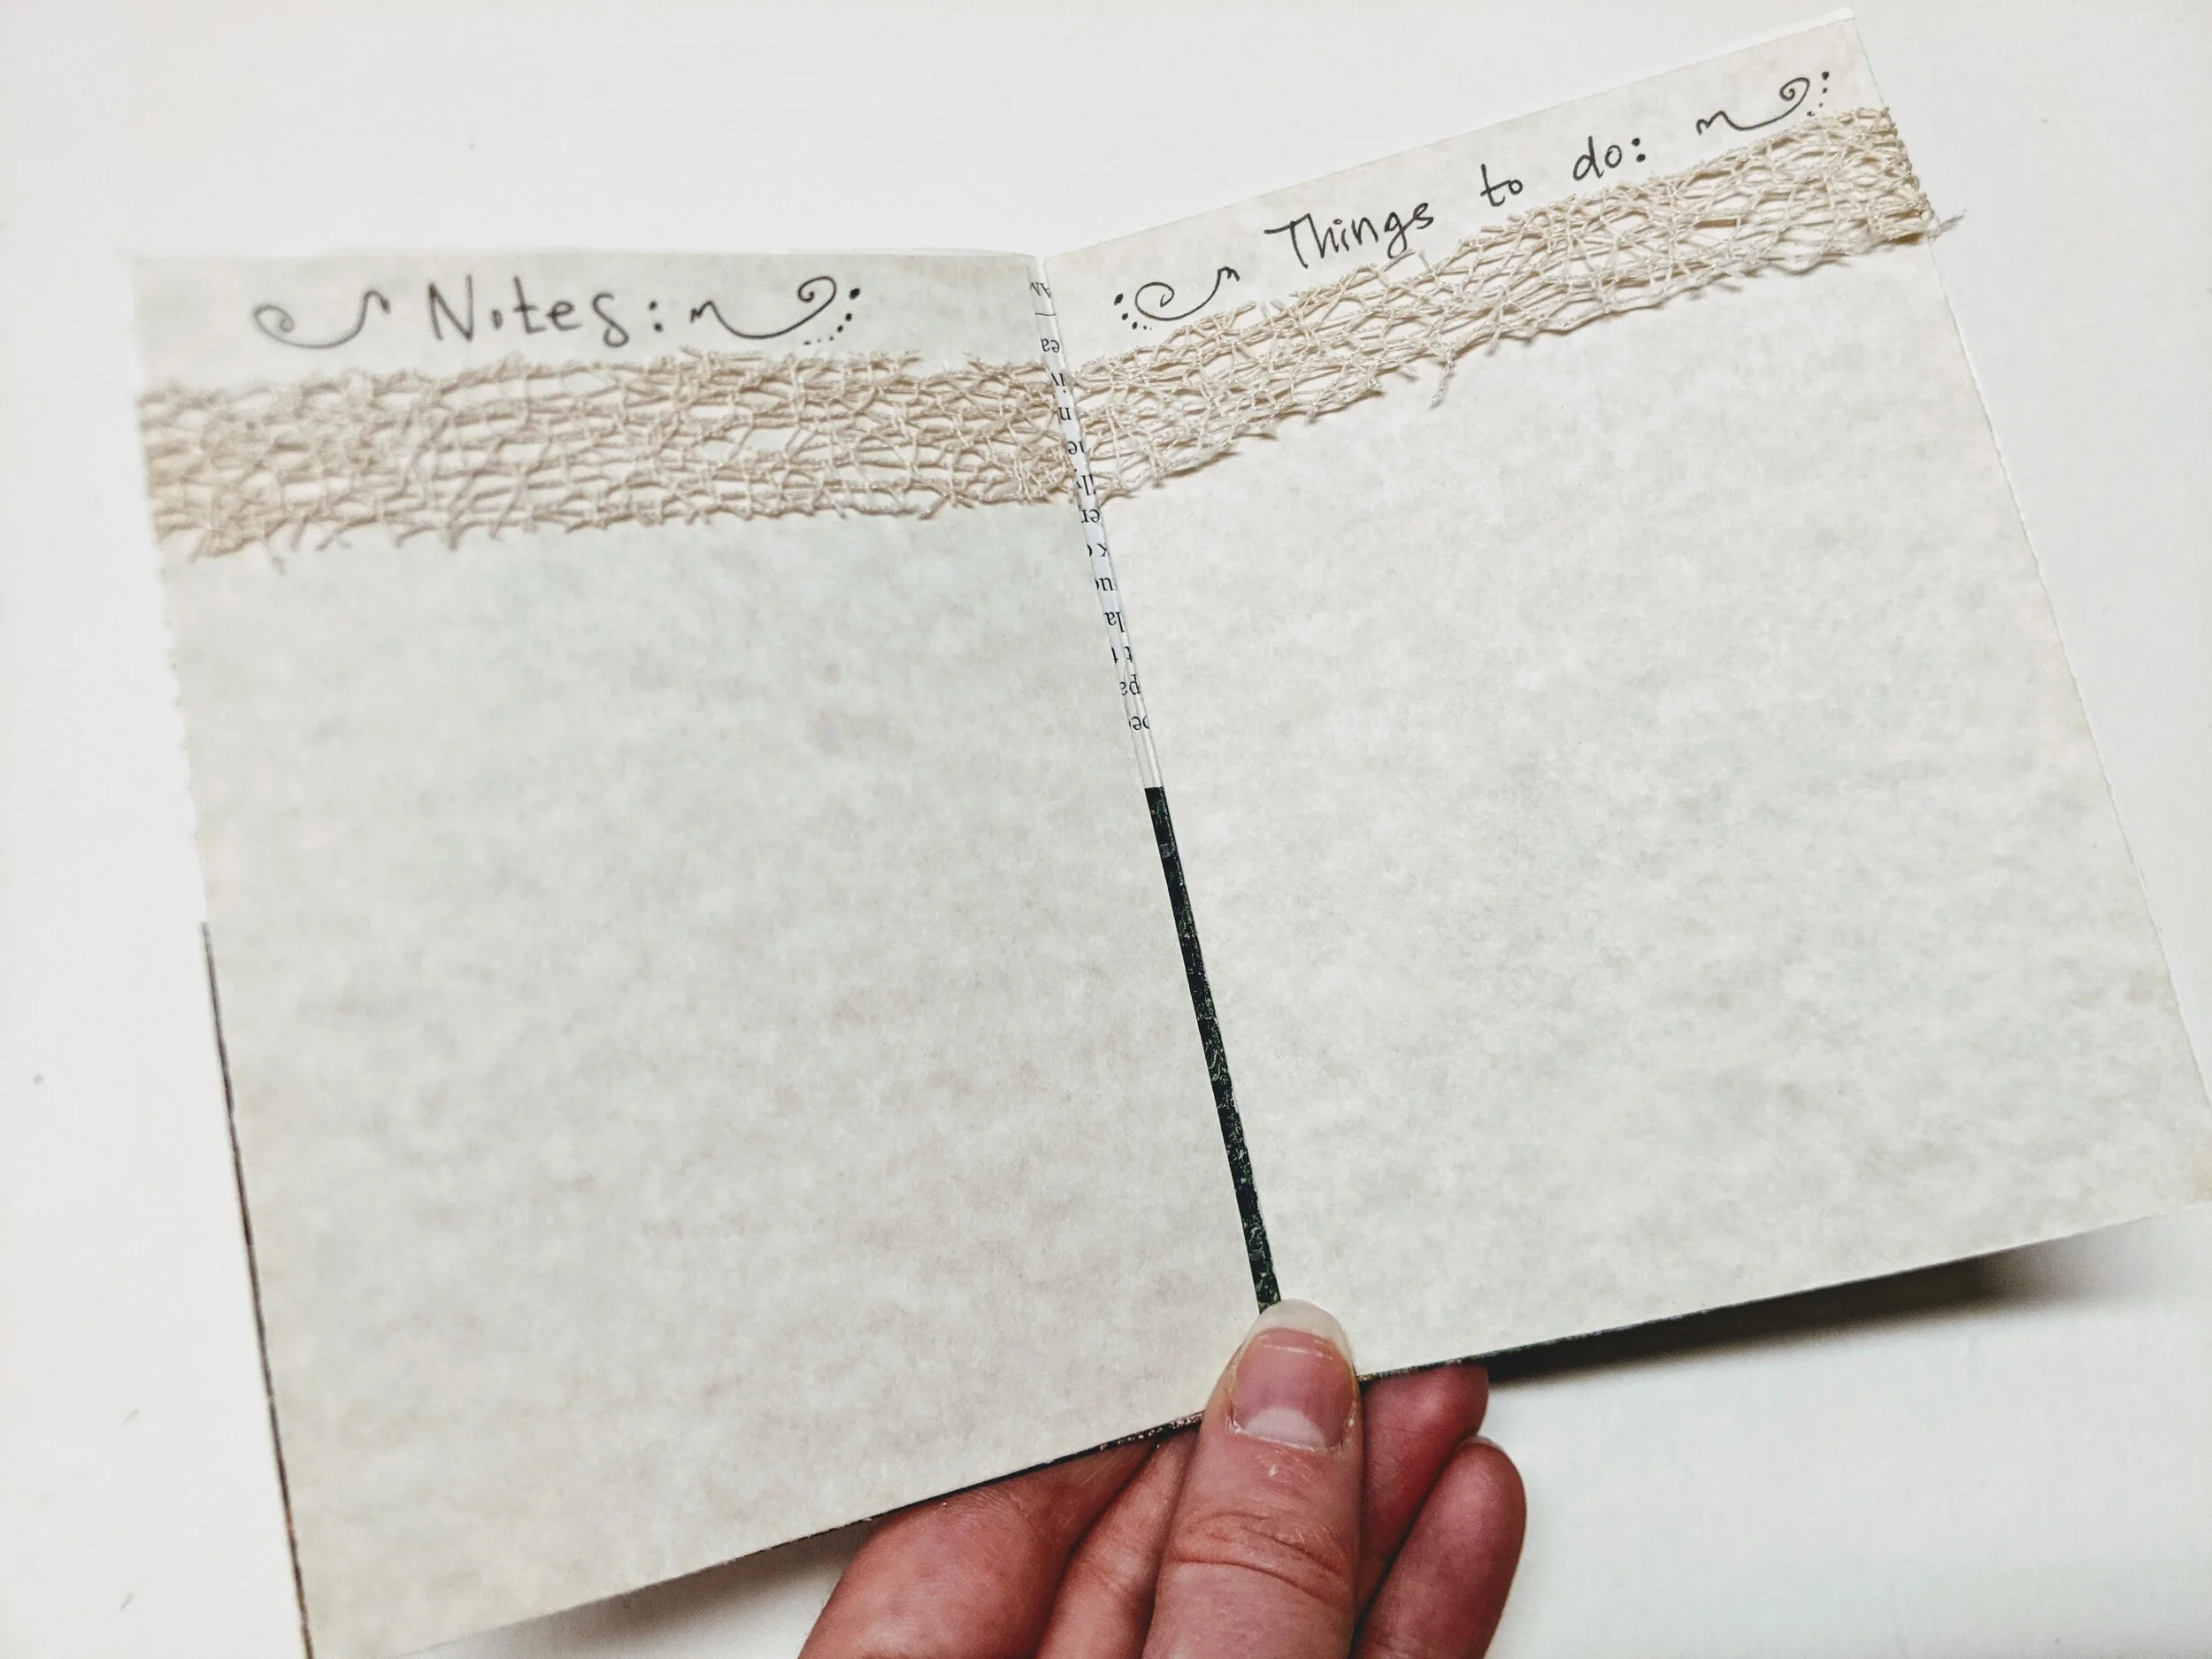 Notes:
Things to do: